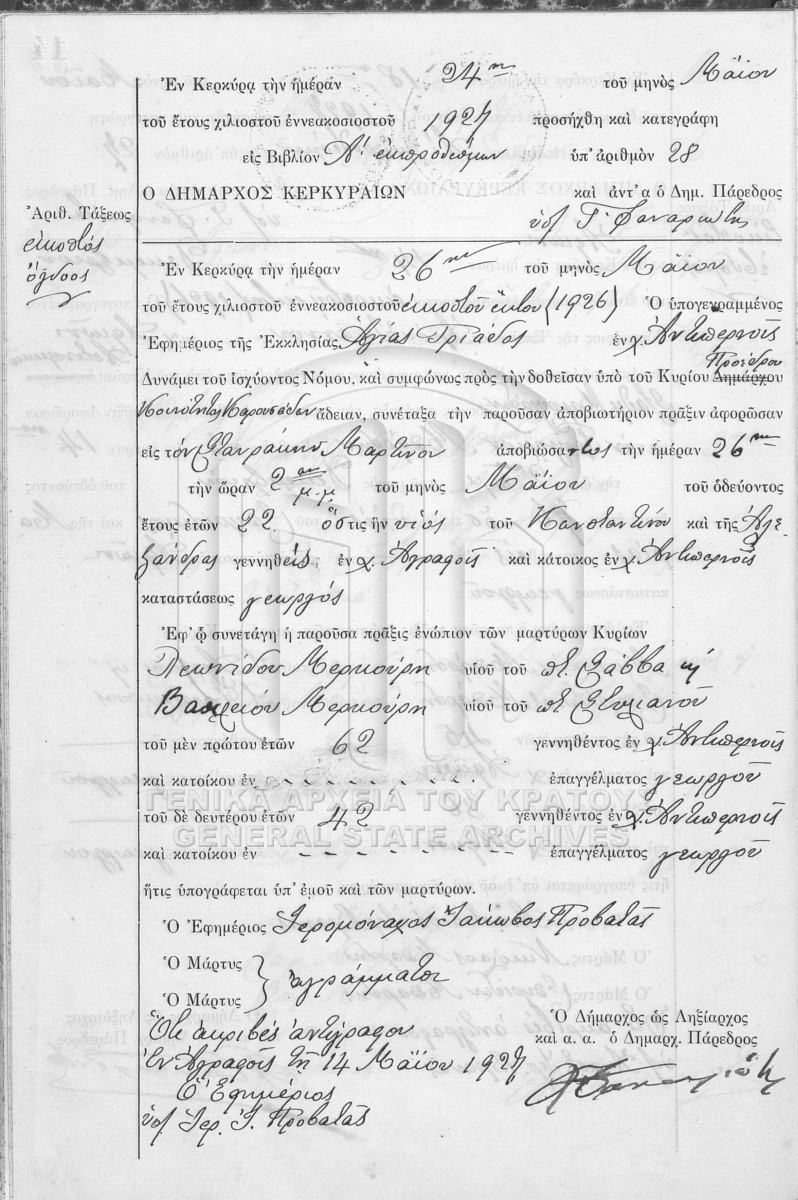 Ἐν Κερκύρᾳ τὴν ἡμέραν 24ην τοῦ μηνὸς Μαΐου
τοῦ ἔτους χιλιοστοῦ ἐννεακοσιοστοῦ 1927 προσήχθη καὶ κατεγράφη
εἰς Βιβλίον Α' ἐκπροθέσμων ὑπ' ἀριθμὸν 28
Ο ΔΗΜΑΡΧΟΣ ΚΕΡΚΥΡΑΙΩΝ καὶ ἀντ' α ὁ Δημ. Πάρεδρος
ὑπ/ Γ. Φαναριώτης
Ἀριθ. Τάξεως
εἰκοστὸς
ὄγδοος
Ἐν Κερκύρᾳ τὴν ἡμέραν 26ην τοῦ μηνὸς Μαΐου
τοῦ ἔτους χιλιοστοῦ ἐννεακοσιοστοῦ εἰκοστοῦ ἕκτου (1926) Ὁ ὑπογεγραμμένος
Ἐφημέριος τῆς Ἐκκλησίας Ἁγίας Τριάδος ἐν χ. Ἀντιπερνοῖς
Προέδρου
Δυνάμει τοῦ ἰσχύοντος Νόμου, καὶ συμφώνως πρὸς τὴν δοθεῖσαν ὑπὸ τοῦ Κυρίου Δημάρχου
Κοινότητος Καρουσάδων ἄδειαν, συνέταξα τὴν παροῦσαν ἀποβιωτήριον πρᾶξιν ἀφορῶσαν
εἰς τὸν Σταυράκην Μαρτίνον ἀποβιώσαντος τὴν ἡμέραν 26ην
τὴν ὥραν 2αν μ.μ. τοῦ μηνὸς Μαΐου τοῦ ὁδεύοντος
ἔτους ἐτῶν 22. ὅστις ἦν υἱός τοῦ Κωνσταντίνου καὶ τῆς Ἀλε-
ξάνδρας γεννηθείς, ἐν χ. Ἀγραφοῖς καὶ κάτοικος ἐν χ. Ἀντιπερνοῖς
καταστάσεως γεωργός
Ἐφ' ᾧ συνετάγη ἡ παροῦσα πρᾶξις ἐνώπιον τῶν μαρτύρων Κυρίων
Λεωνίδου Μερκούρη υἱοῦ τοῦ πτ. Σάββα ἢ
Βασιλείου Μερκούρη υἱοῦ τοῦ πτ. Στυλιανοῦ
τοῦ μὲν πρώτου ἐτῶν 62 γεννηθέντος ἐν χ. Ἀντιπερνοῖς
καὶ κατοίκου ἐν ἐπαγγέλματος γεωργοῦ
ΓΕΝΙΚΑ ΑΡΧΕΙΑ ΤΟΥ ΚΡΑΤΟΥΣ
τοῦ δὲ δευτέρου ἐτῶν 42 γεννηθέντος ἐν χ. Ἀντιπερνοῖς
GENERAL STATE ARCHIVES
καὶ κατοίκου ἐν ἐπαγγέλματος γεωργοῦ
ἥτις ὑπογράφεται ὑπ' ἐμοῦ καὶ τῶν μαρτύρων.
Ὁ Ἐφημέριος Ἱερομόναχος Ἰάκωβος Προβατᾶς
Ὁ Μάρτυς
ἀγράμματοι
Ὁ Μάρτυς
Ὅτι ἀκριβὲς ἀντίγραφον
Ἐν Ἀγραφοῖς τῇ 14 Μαΐου 1927
Ὁ Ἐφημέριος
ὑπ/ Ἱερ. Ἰ. Προβατᾶς
Ὁ Δήμαρχος ὡς Ληξίαρχος
καὶ α. α. ὁ Δημαρχ. Πάρεδρος